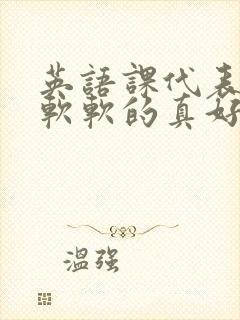 英語課代表
軟軟的真好
溫强